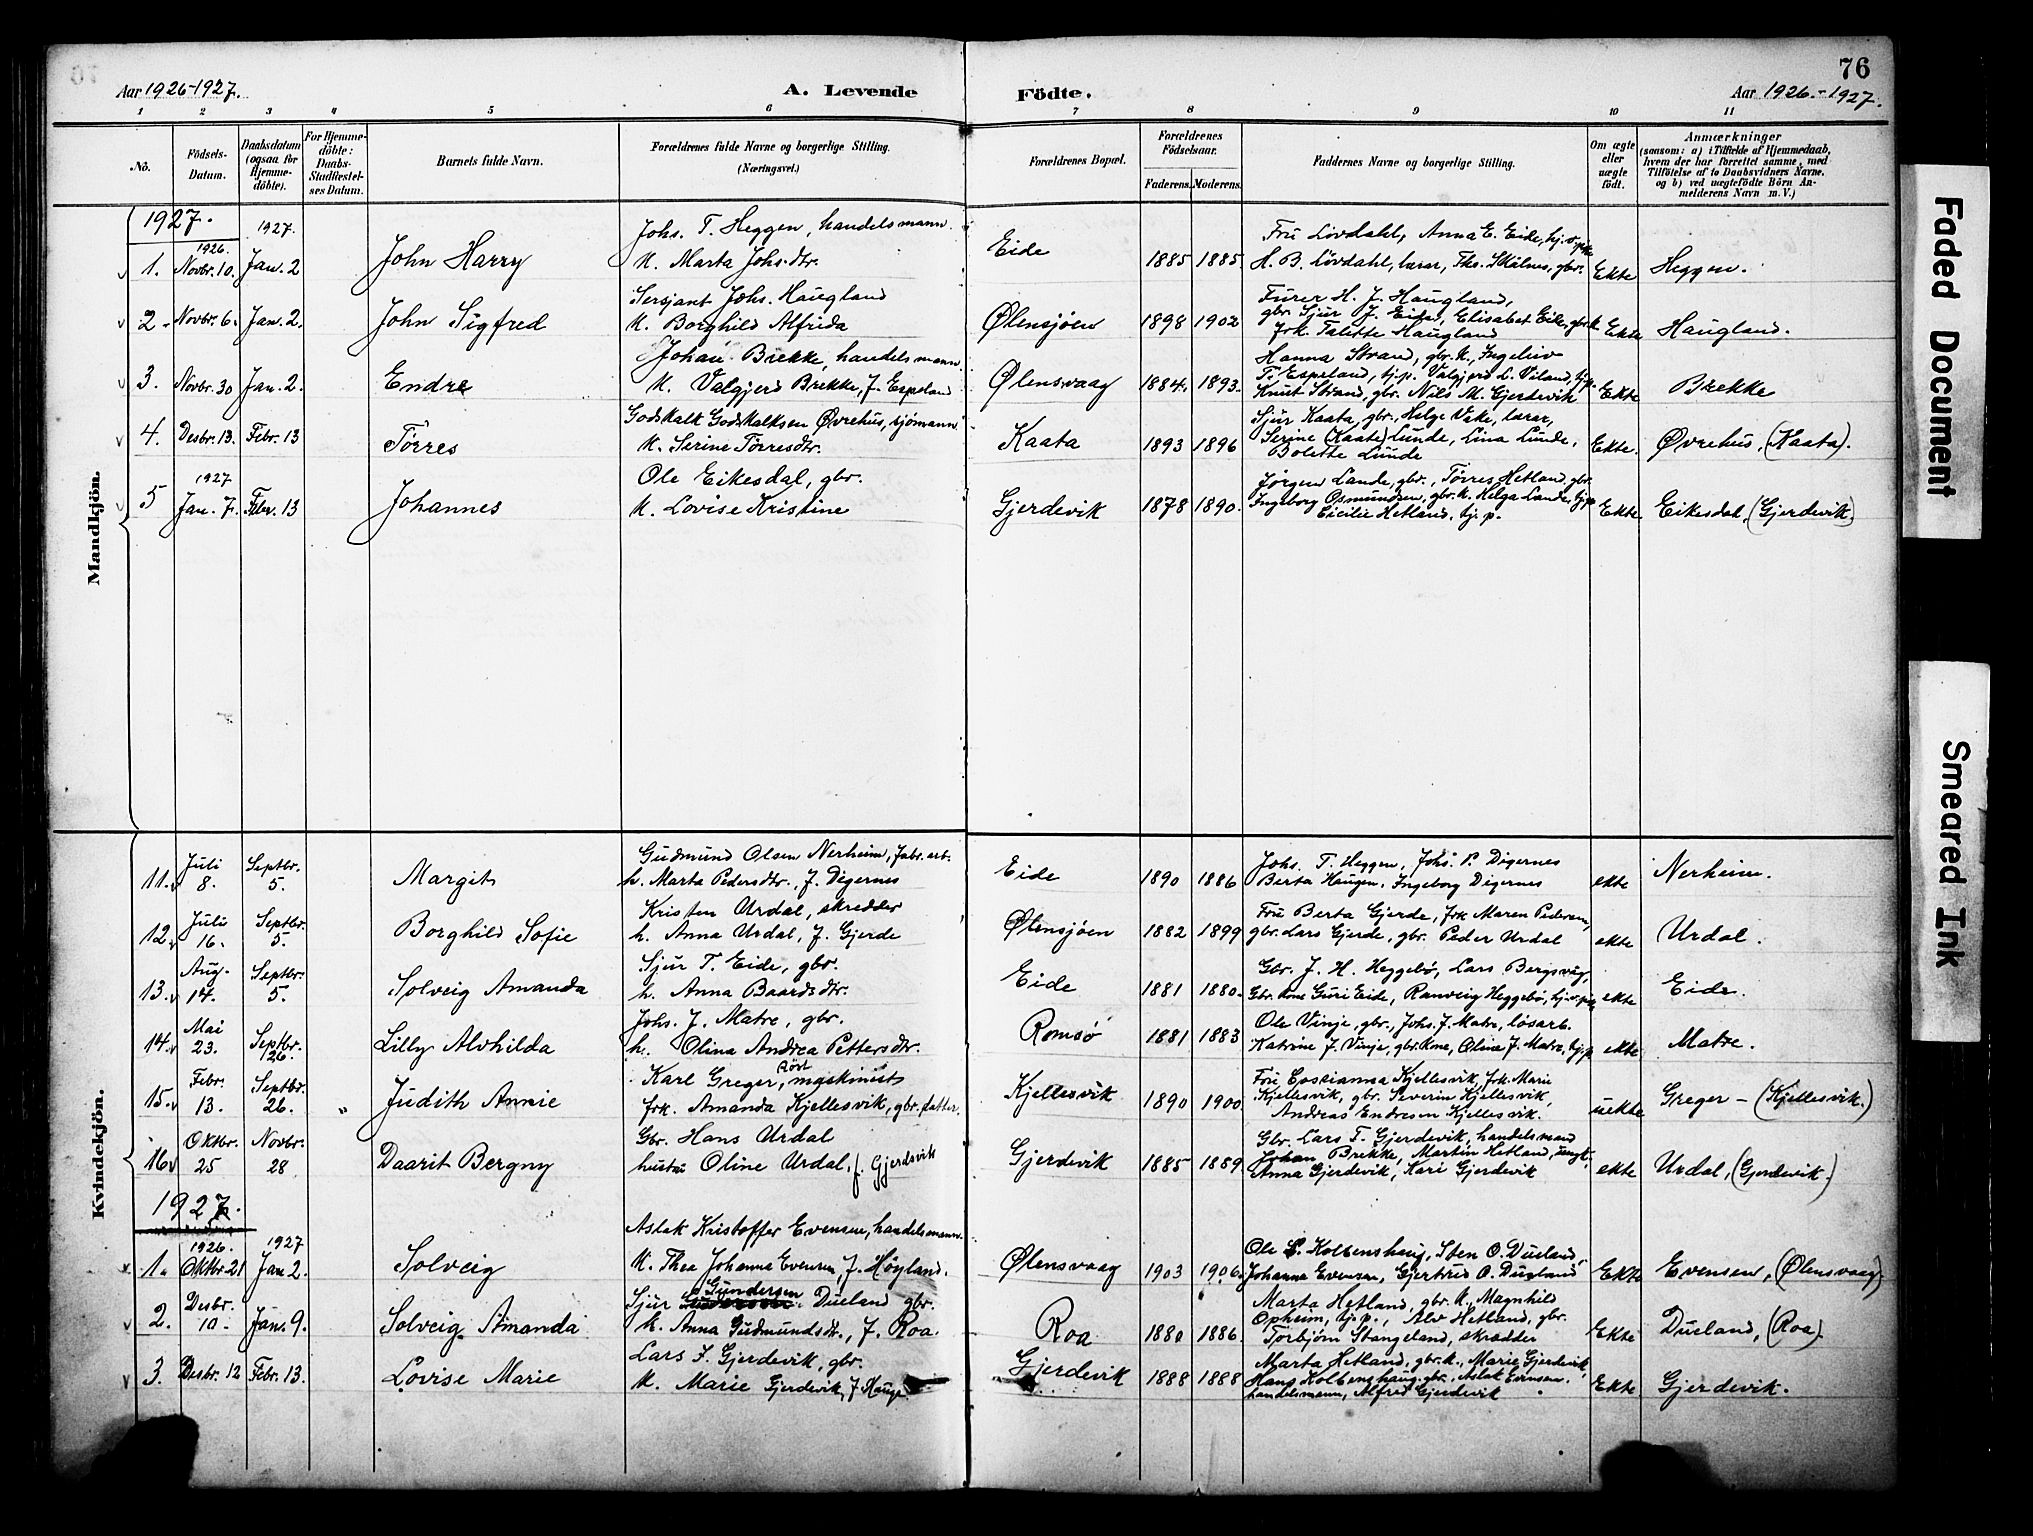 76
Aar 1926-1927.
A. Levende
Födte.
Aar 1926.-1927.
1 2 3 4 5 6 7 8 9 10 11
No.
Födsels-
Datum.
Daabsdatum
(ogsaa for
Hjemme-
döbte).
For Hjemme-
döbte:
Daabs-
Stadfæstel-
ses Datum.
Barnets fulde Navn.
Forældrenes fulde Navne og borgerlige Stilling.
(Næringsvei.)
Forældrenes Bopæl.
Forældrenes
Födselsaar.
Faderens. Moderens.
Faddernes Navne og borgerlige Stilling.
Om ægte
eller
uægte
födt.
Anmærkninger
(saasom: a) i Tilfælde af Hjemmedaab,
hvem der har forrettet samme, med
Tilföielse af to Daabsvidners Navne,
og b) ved uægtefödte Börn An-
melderens Navn m. V.)
Mandkjön.
1927.
1926. 1927.
1. Novbr. 10. Jan. 2
John Harry
Johs. T. Heggen, handelsmann
K. Marta Johs.dtr.
Eide
1885 1885
Fru Lövdahl, Anna E. Eide, hj. v. pike
H. B. Lövdahl, lærar, Ths. Skålnes, gbr.
Ekte
Heggen.
2. Novbr. 6. Jan. 2.
John Sigfred
Sersjant Johs. Haugland
K. Borghild Alfrida
Ølensjöen
1898 1902
Furer H. J. Haugland,
gbr. Sjur J. Eide, Elisabet Eide, gbr.k.
Frk. Talette Haugland
Ekte
Haugland.
3. Novbr. 30 Jan. 2.
Endre
Johan Brekke, handelsmann
K. Valgjerd Brekke, f. Espeland
Ølensvaag
1884. 1893.
Hanna Strand, gbr. K., Ingeleiv
T. Espeland, hj.p. Valgjerd L. Viland, hj.p.
Knut Strand, gbr. Nils M. Gjerdevik
Ekte
Brekke
4. Desbr. 13. Febr. 13
Törres
Godskalk Godskalksen Övrehus, sjömann
K. Serine Törresdtr.
Kaata
1893 1896
Sjur Kaata, gbr., Helge Vake, lærar,
Serine (Kaate) Lunde, Lina Lunde,
Bolette Lunde
Ekte.
Øvrehus, (Kaata).
1927
5 Jan. 7. Febr. 13
Johannes
Ole Eikesdal, gbr.
K. Lovise Kristine
Gjerdevik
1878 1890.
Jörgen Lande, gbr., Törres Hetland, gbr.
Ingeborg Osmundsen, gbr. k. Helga Lande, hj.p.
Cicilie Hetland, hj. p.
Ekte
Eikesdal, (Gjerdevik.)
Kvindekjön.
11. Juli 8. Septbr. 5.
Margit
Gudmund Olsen Nerheim, fabr. arb.
h. Marta Pedersdtr., f. Digernes
Eide
1890 1886
Johs. T. Heggen, Johs. P. Digernes
Berta Haugen, Ingeborg Digernes
ekte
Nerheim.
12. Juli 16. Septbr. 5.
Borghild Sofie
Kristen Urdal, skredder
h. Anna Urdal, f. Gjerde
Ølensjöen
1882 1899
Fru Berta Gjerde, frk Maren Pedersen,
gbr. Lars Gjerde, gbr. Peder Urdal
ekte
Urdal.
13. Aug. 14. Septbr. 5.
Solveig Amanda
Sjur T. Eide, gbr.
h. Anna Baardsdtr.
Eide
1881 1880.
Gbr. J. H. Heggebö, Lars Bergsvåg,
Gbr. kone Guri Eide, Ranveig Heggebö, hj. v. pike
ekte
Eide.
14. Mai 23. Septbr. 26.
Lilly Alvhilda
Johs. J. Matre, gbr.
h. Olina Andrea Pettersdtr.
Romsö
1881 1883
Ole Vinje, gbr., Johs. J. Matre, lösarb.
Katrine J. Vinje, gbr. kone, Olina J. Matre, hj.p.
ekte
Matre.
15. Febr. 13. Septbr. 26. "
Judith Annie
Karl Greger, maskinist
frk. Amanda Kjellesvik, gbr. datter.
Kjellesvik
1890 1900
Fru Kjellesvik, frk. Marie
Kjellesvik, gbr. Severin Kjellesvik,
Andreas Endresen Kjellesvik.
uekte
Greger - (Kjellesvik.)
16. Oktbr. 25 Novbr. 28
Daarit Bergny
Gbr. Hans Urdal
hustru Oline Urdal, f. Gjerdsvik
Gjerdevik
1885 1889
Gbr. Lars T. Gjerdevik, handelsmand
Johan Brekke, Martin Hetland, ungk.,
Anna Gjerdevik, Kari Gjerdevik
ekte
Urdal, (Gjerdevik.)
1927.
1926. 1927
1. Oktbr. 21 Jan. 2.
Solveig
Aslak Kristoffer Evensen, handelsmann
K. Thea Johanna Evensen, f. Höyland.
Ølensvaag
1903 1906.
Ole S. Kolbenshaug, Sten O. Dueland,
Johanna Evensen, Gjertrud O. Dueland
Ekte
Evensen, (Ølensvaag).
2. Desbr. 10. Jan. 9.
Solveig Amanda
Sjur Gundersen Dueland gbr.
K. Anna Gudmundsdtr., f. Roa.
Roa
1880 1886.
Marta Hetland, gbr. K., Magnhild
Opheim, hj. p., Alv Hetland, gbr.
Torbjörn Stangeland, skrædder
Ekte
Dueland, (Roa).
3. Desbr. 12 Febr. 13.
Lovise Marie
Lars T. Gjerdevik, gbr.
K. Marie Gjerdevik, f. Hauge
Gjerdevik
1888 1888
Marta Hetland, gbr. k., Marie Gjerdevik,
Hans Kolbenshaug, gbr., Aslak Evensen,
handelsmann, Alfred Gjerdevik
Ekte
Gjerdevik.
Faded Document
Smeared Ink